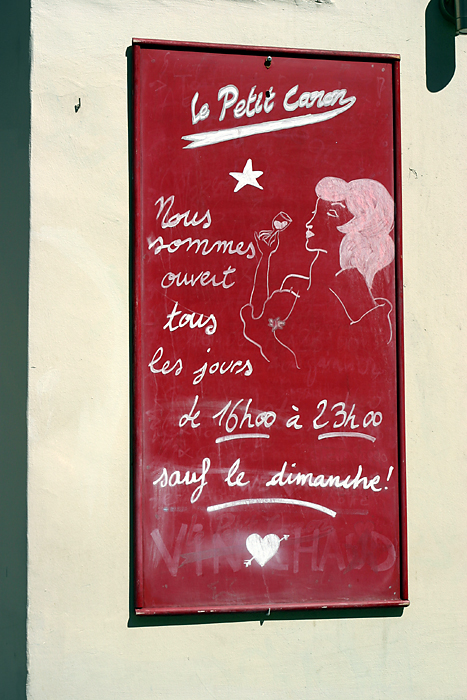 le Petit Canon
Nous
sommes
ouvert
tous
les jours
de 16h00 à 23h00
sauf le dimanche!
VIN CHAUD